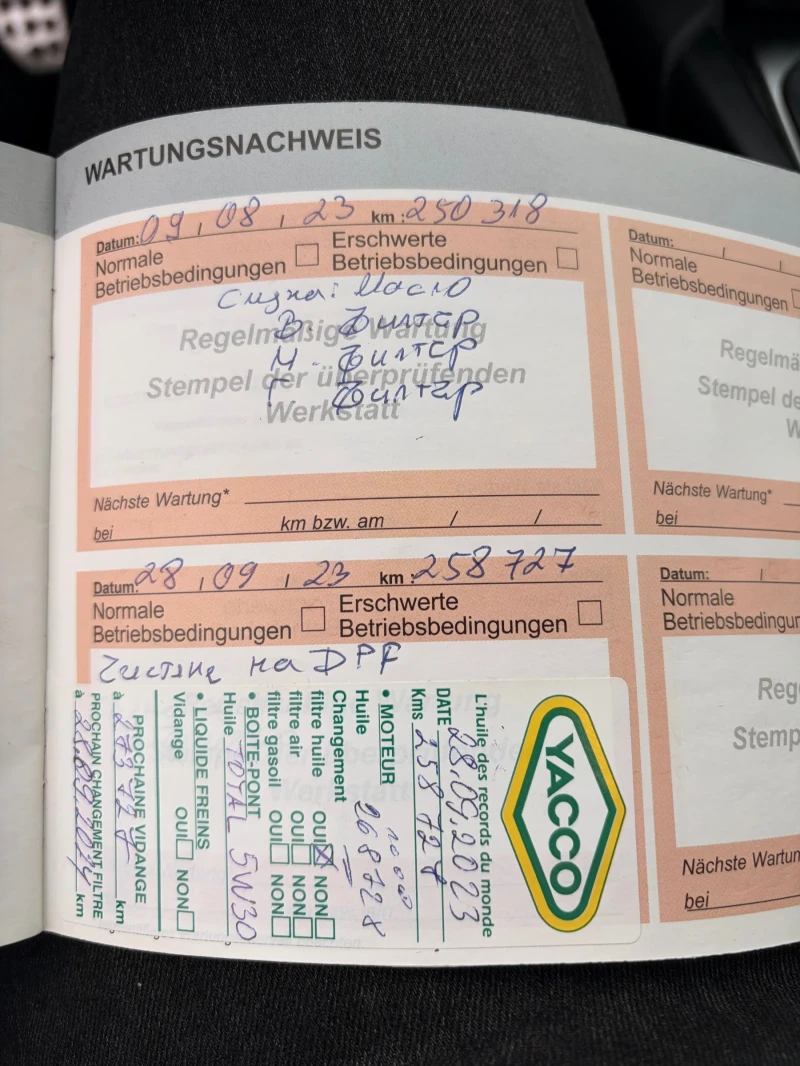 WARTUNGSNACHWEIS
Datum: 09, 08, 23 km: 250 318
Normale Betriebsbedingungen
Erschwerte Betriebsbedingungen
Смяна: Масло
В. Филтер
М. Филтер
Г. Филтер
Regelmäßige Wartung
Stempel der überprüfenden
Werkstatt
Nächste Wartung*
bei km bzw. am / /
Datum: 28, 09, 23 km: 258 727
Normale Betriebsbedingungen
Erschwerte Betriebsbedingungen
Чистене на DPF
YACCO
L'huile des records du monde
DATE 28.09.2023
Kms 258727
• MOTEUR 10000
Huile 268728
Changement
filtre huile OUI X NON
filtre air OUI NON
filtre gasoil OUI NON
• BOITE-PONT
Huile TOTAL 5W30
• LIQUIDE FREINS
Vidange OUI NON
PROCHAINE VIDANGE
à km
PROCHAIN CHANGEMENT FILTRE
à km
Datum: / /
Normale
Betriebsbedingungen
Regelmä
Stempel de
W
Nächste Wartung*
bei
Datum: /
Normale
Betriebsbedingun
Reg
Stemp
Nächste Wartun
bei